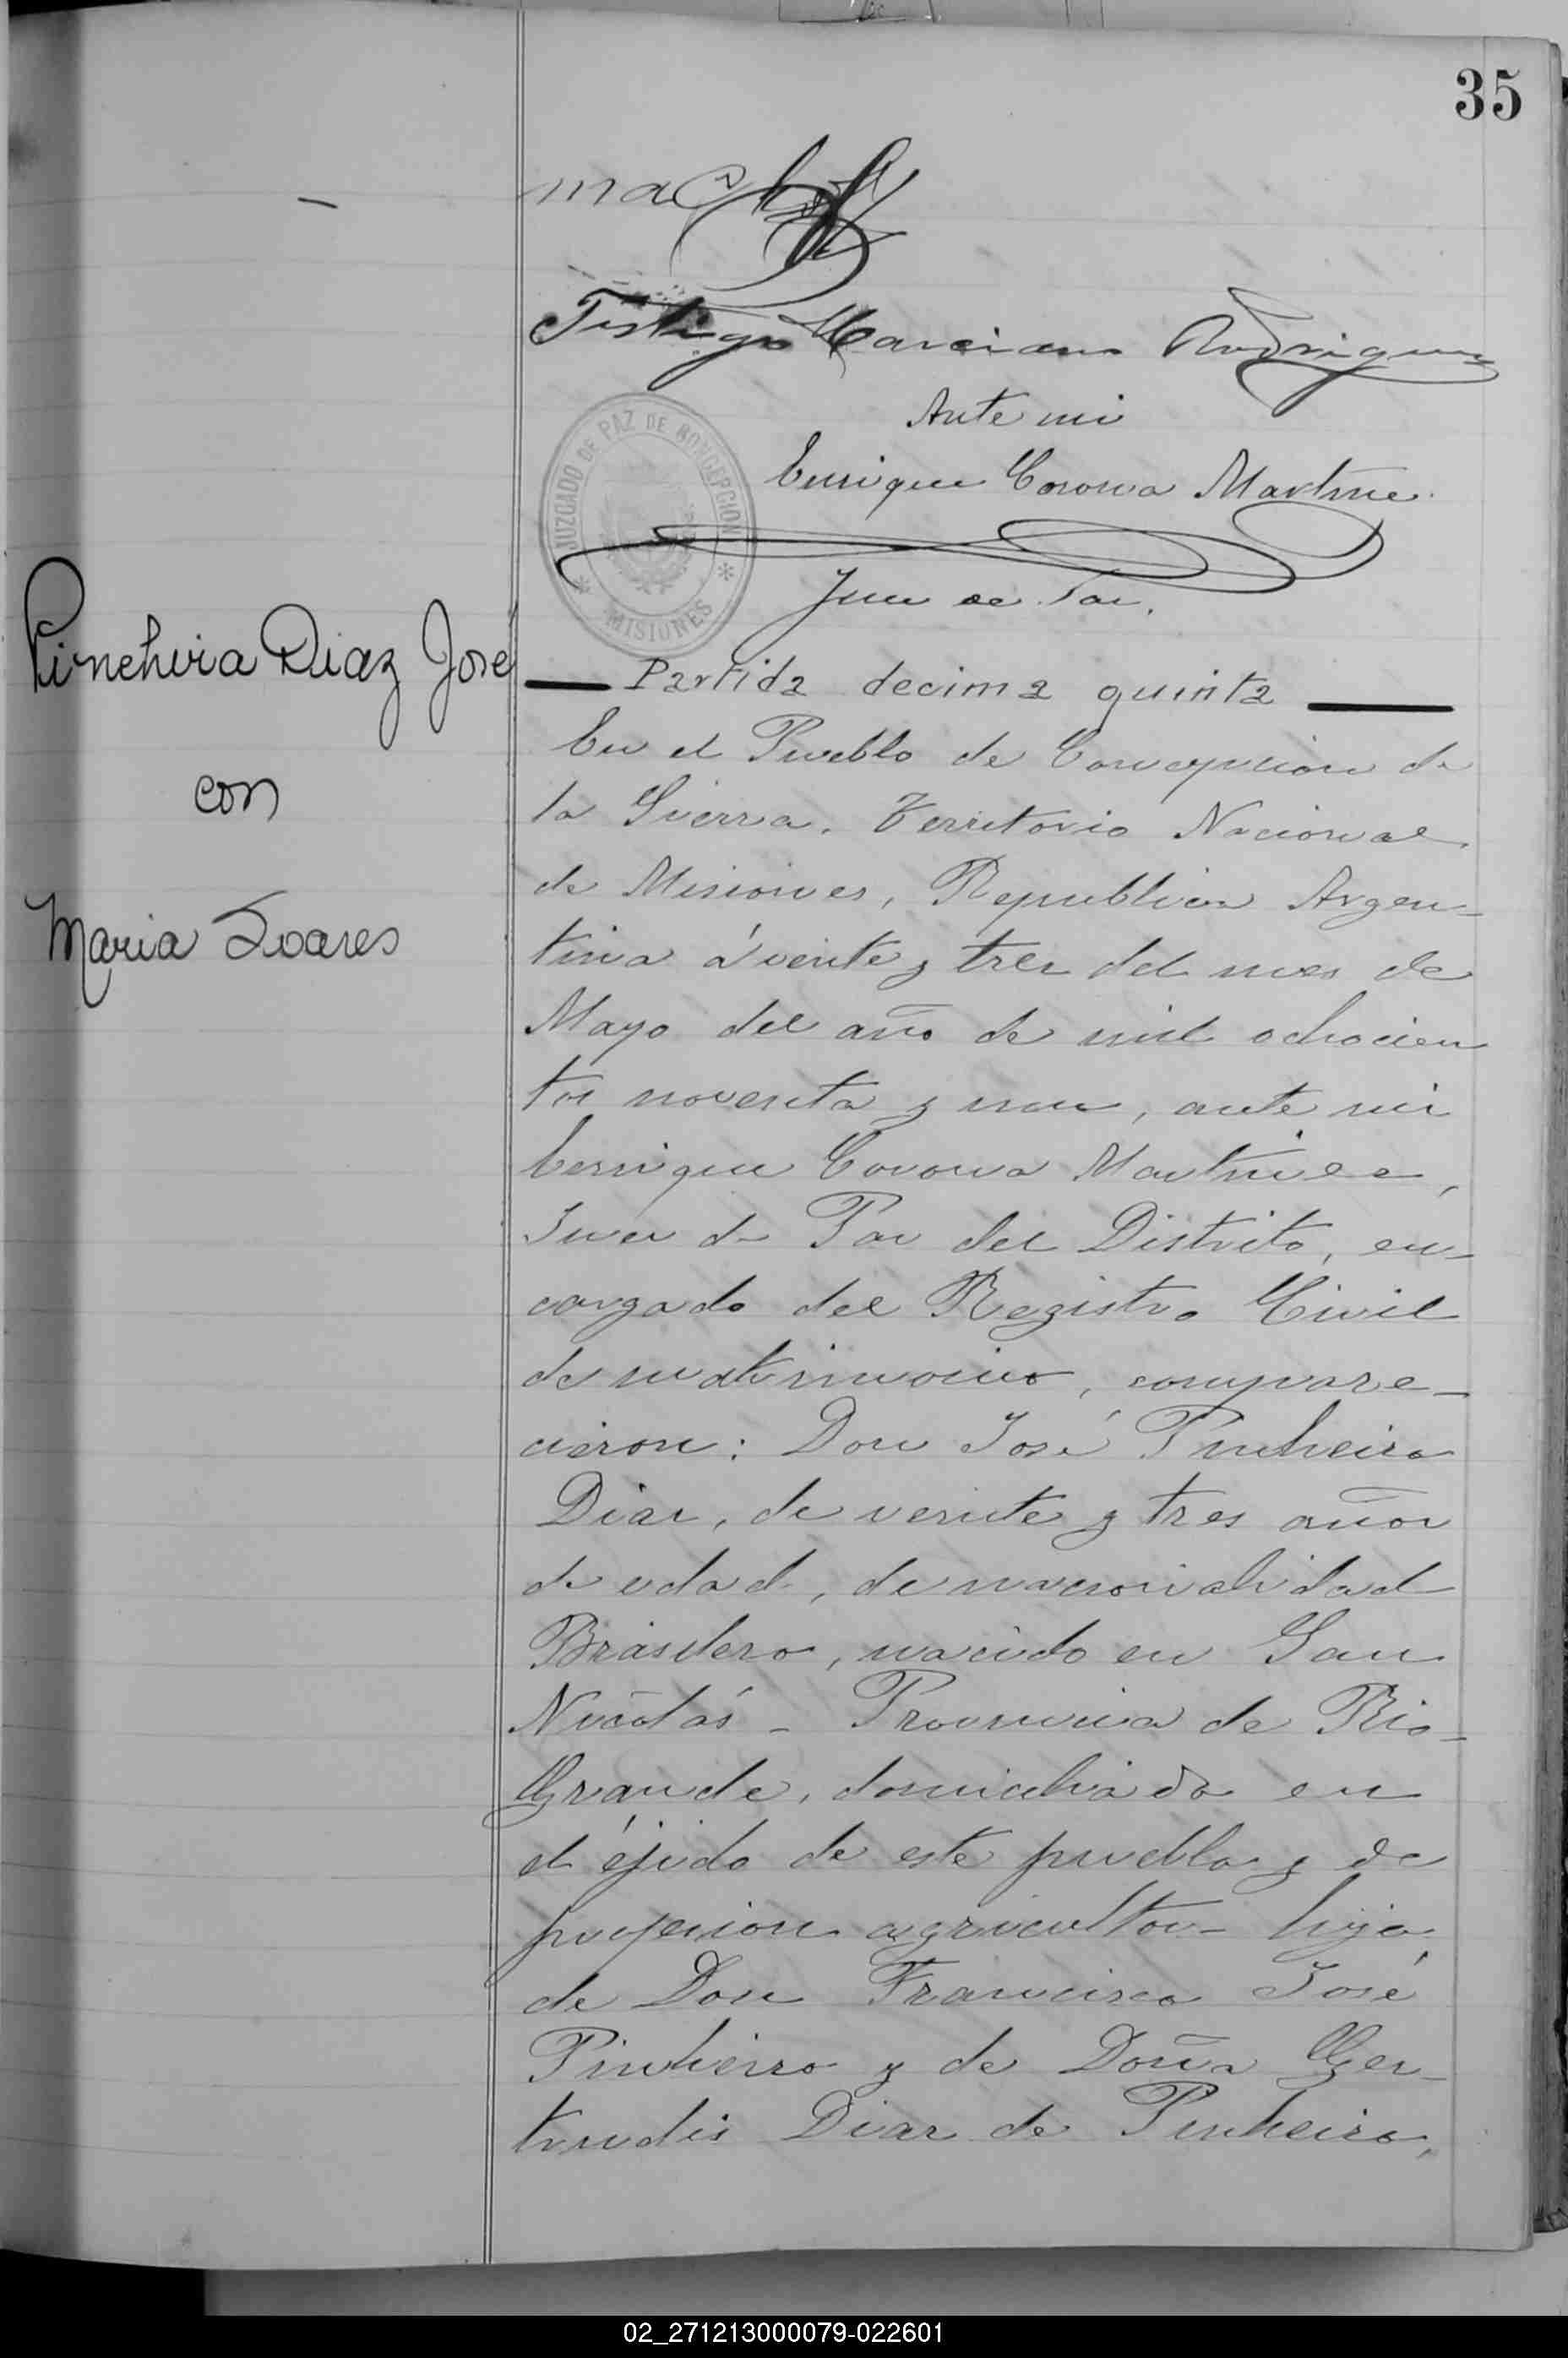 35
Testigo Marciano Rodriguez
Ante mi
Enrique Corona Martinez
JUZGADO DE PAZ DE CONCEPCION
* MISIONES *
Juez de Paz.
Pinehira Diaz José
con
Maria Soares
Partida decima quinta
En el Pueblo de Concepcion de
la Sierra, Territorio Nacional
de Misiones, Republica Argen-
tina á veinte y tres del mes de
Mayo del año de mil ochocien
tos noventa y uno, ante mi
Enrique Corona Martinez,
Juez de Paz del Distrito, en-
cargado del Registro Civil
de matrimonios, compare-
cieron: Don José Pinheiro
Diaz, de veinte y tres años
de edad, de nacionalidad
Brasilero, nacido en San
Nicolás - Provincia de Rio-
Grande, domiciliado en
el éjido de este pueblo y de
profesion agricultor - hijo
de Don Francisco José
Pinheiro y de Doña Ger-
trudis Diaz de Pinheiro,
02_271213000079-022601